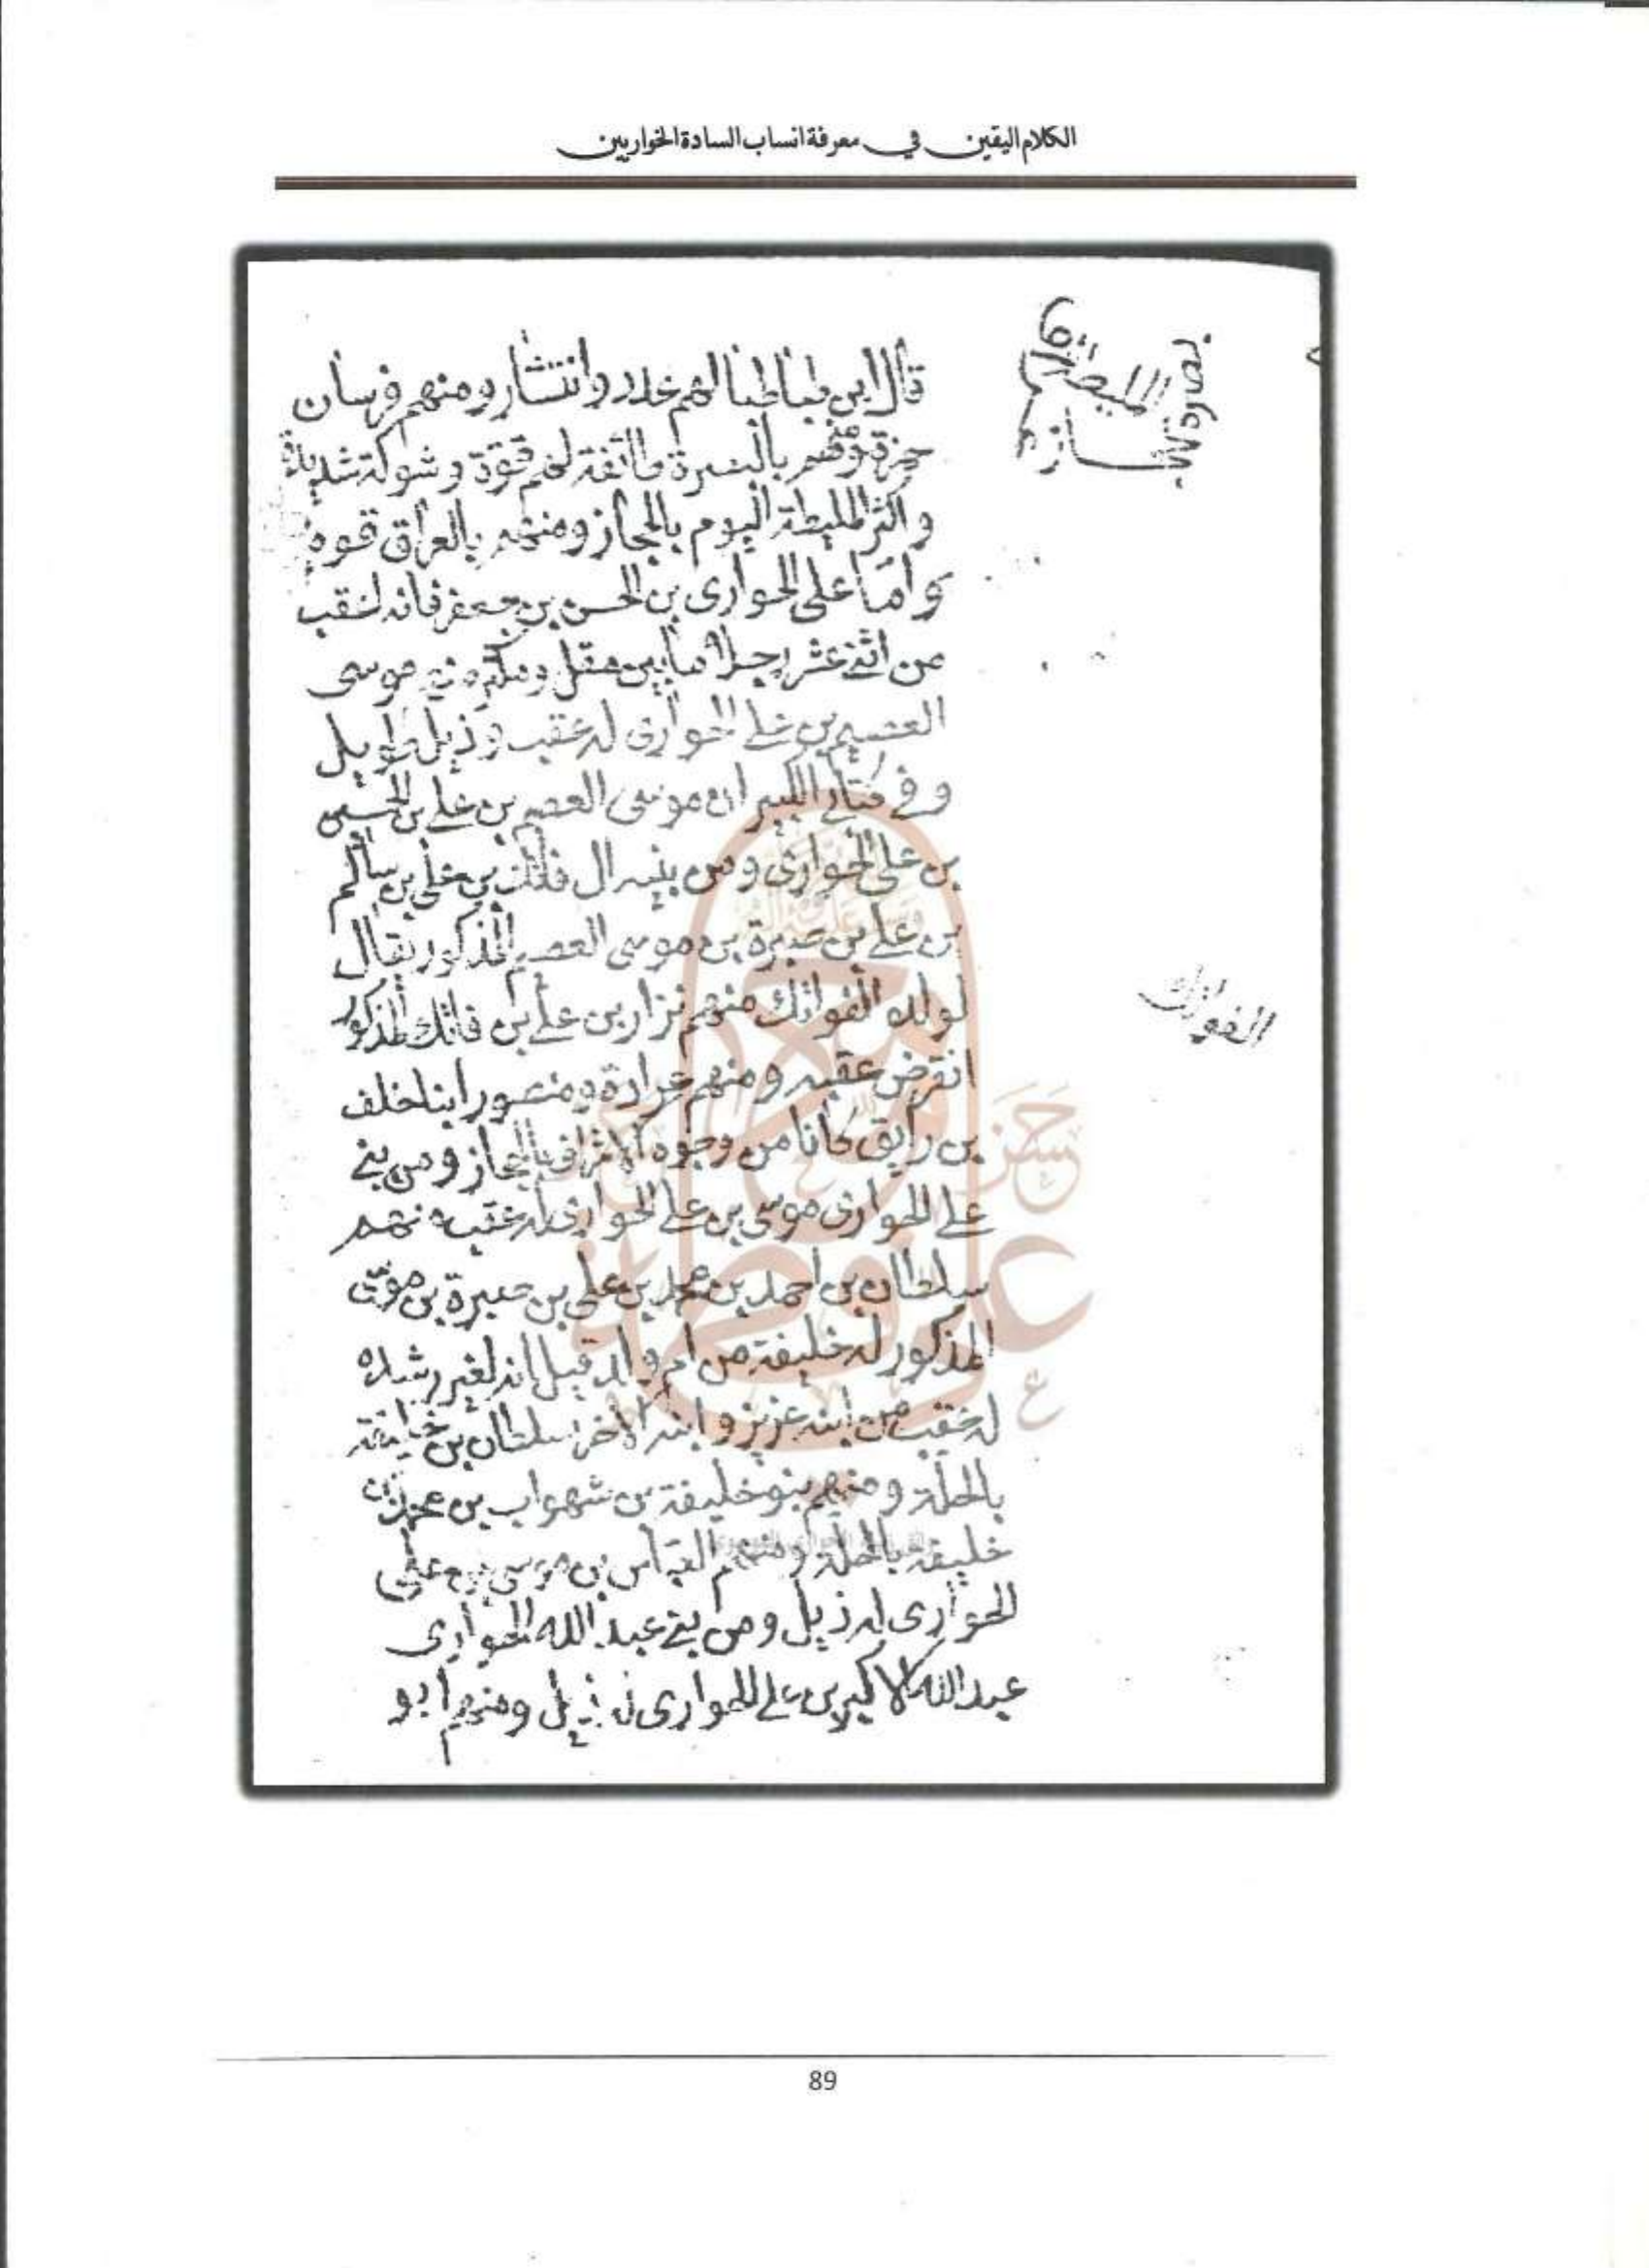 الكلام اليقين في معرفة انساب السادة الخواريين
قال ابن طباطبا لهم عدد وانتشار ومنهم فرسان
حمزة ومنهم بالبصرة طائفة لهم قوة وشوكة شديدة
واكثر المليطة اليوم بالحجاز ومنهم بالعراق قوم
واما على الحوارى بن الحسن بن جعفر فانه اعقب
من اثنى عشر رجلا ما بين مقل ومكثر موسى
العصيم بن على الحوارى له عقب وذيل طويل
وفى كتابى الكبير ان موسى العصيم بن على بن الحسن
بن على الحوارى ومن بنيه ال فاتك بن على بن سالم
بن على بن صبرة بن موسى العصيم المذكور يقال
لولده الفواتك منهم نزار بن على بن فاتك المذكور
الفواتك
انقرض عقبه ومنهم عرادة ومنصور ابنا خلف
بن رايق كانا من وجوه الاشراف بالحجاز ومن بنى
على الحوارى موسى بن على الحوارى له عقب منهم
سلطان بن احمد بن محمد بن على بن صبرة بن موسى
المذكور له خليفة من ام ولد قيل انه لغير رشده
له عقب من ابنه عزيز وابنه الاخر سلطان بن خليفة
بالحلة ومنهم بنو خليفة بن شهوان بن محمد بن
خليفة بالحلة ومنهم العباس بن موسى بن على
الحوارى له ذيل ومن بنى عبد الله الحوارى
عبد الله الاكبر بن على الحوارى له ذيل ومنهم ابو
89